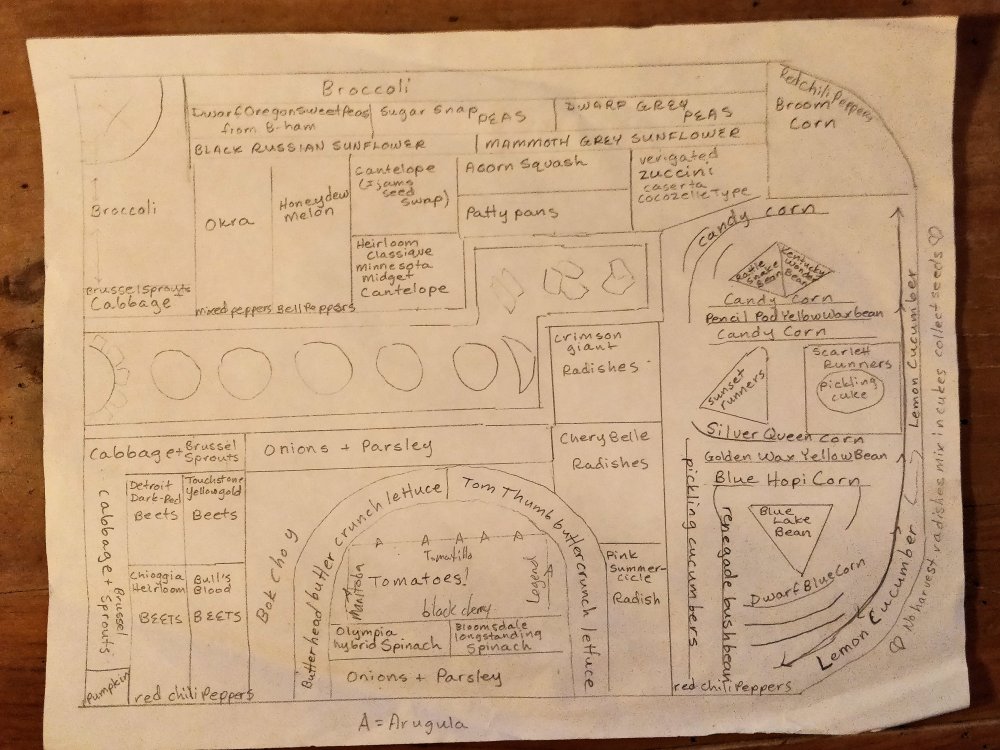 Broccoli
Red chili Peppers
Broom
Corn
Dwarf Oregon Sweet Peas
from B-ham
Sugar Snap
PEAS
DWARF GREY
PEAS
BLACK RUSSIAN SUNFLOWER
MAMMOTH GREY SUNFLOWER
Broccoli
Brussel Sprouts
Cabbage
Okra
Honeydew
Melon
cantelope
(Ijams
seed
swap)
Heirloom
Classique
Minnesota
Midget
Cantelope
mixed peppers Bell Peppers
Acorn Squash
Patty pans
verigated
zuccini
caserta
cocozelle Type
Candy corn
Rattle
Snake
Bean
Kentucky
Wonder
Bean
Candy Corn
Pencil Pod Yellow Wax bean
Candy Corn
sunset
runners
Scarlett
Runners
pickling
cuke
Silver Queen corn
Golden Wax Yellow Bean
Blue Hopi Corn
Blue
Lake
Bean
Dwarf Blue Corn
pickling cucumbers
renegade bush bean
red chili Peppers
Lemon Cucumber
Lemon Cucumber
♡ No harvest radishes mix in cukes collect seeds ♡
crimson
giant
Radishes
Chery Belle
Radishes
Pink
Summer-
cicle
Radish
Cabbage + Brussel
Sprouts
Onions + Parsley
Cabbage + Brussel
Sprouts
Detroit
Dark-Red
Beets
Touchstone
Yellowgold
Beets
Chioggia
Heirloom
BEETS
Bull's
Blood
BEETS
pumpkin
red chili Peppers
Bok Choy
Butterhead butter crunch lettuce
Tom Thumb buttercrunch lettuce
A A A A A
Tomatillo
Manitoba
Tomatoes!
black cherry
Olympia
hybrid Spinach
Bloomsdale
longstanding
Spinach
Onions + Parsley
A = Arugula